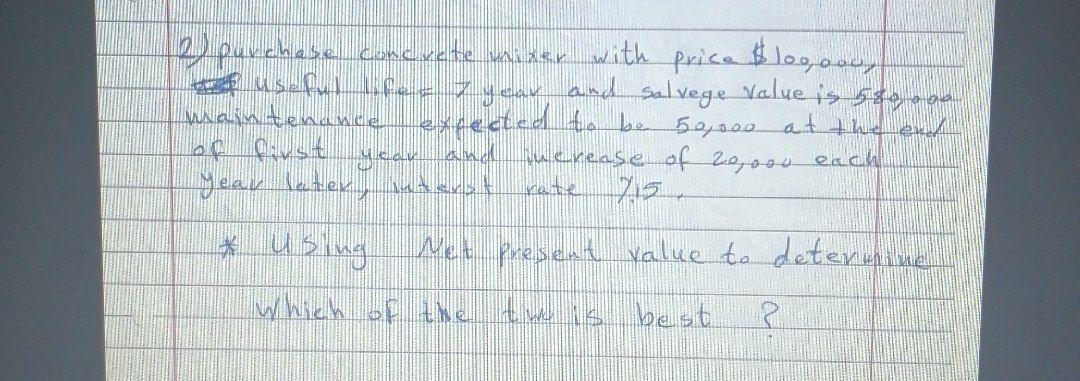 2) purchase concrete mixer with price $100,000,
useful life = 7 year and salvege value is
maintenance expected to be 50,000 at the end
of first year and increase of 20,000 each
year later, interst rate %15.
* Using Net present value to determine
which of the two is best ?